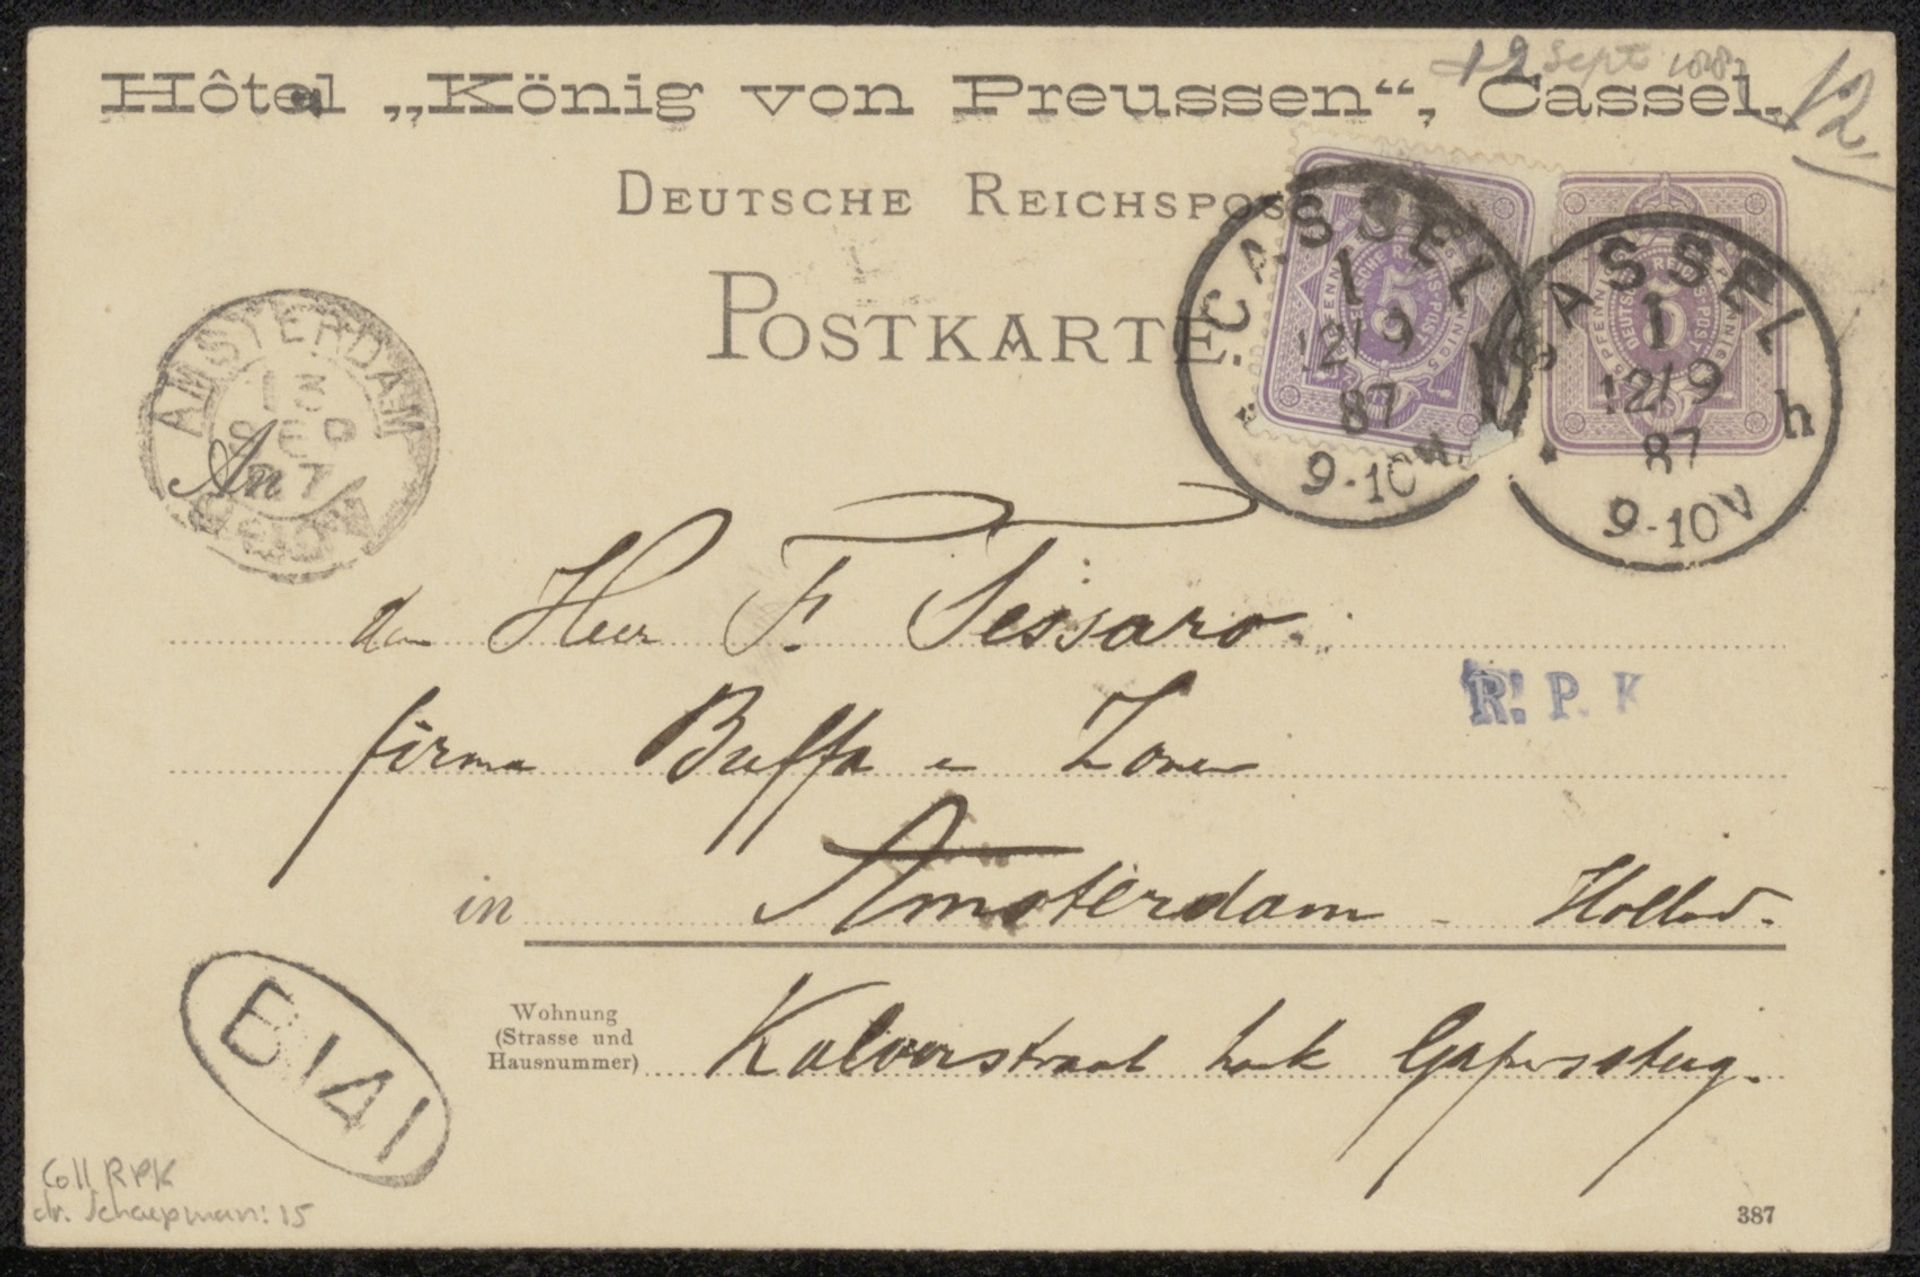 Hôtel „König von Preussen“, Cassel.
12 Sept 1887
12
DEUTSCHE REICHSPOST
POSTKARTE.
CASSEL
1
12/9
87
9-10V
CASSEL
1
12/9
87
h
9-10V
5 PFENNIG
DEUTSCHE REICHS-POST
5
AMSTERDAM
13
SEP
87
An
den Heer F. Tessaro.
firma Buffa en Zonen
R. P. K
in Amsterdam - Holland.
Wohnung
(Strasse und
Hausnummer)
Kalverstraat hoek Gapersteeg.
B141
Coll RPK
dr. Schaepman: 15
387